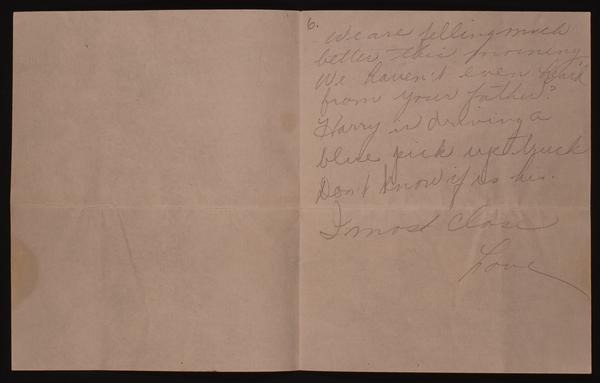 6.
We are felling much
better this morning
We haven't even heard
from your father?
Harry is driving a
blue pick up truck
Don't know if its his.
I most close
Love